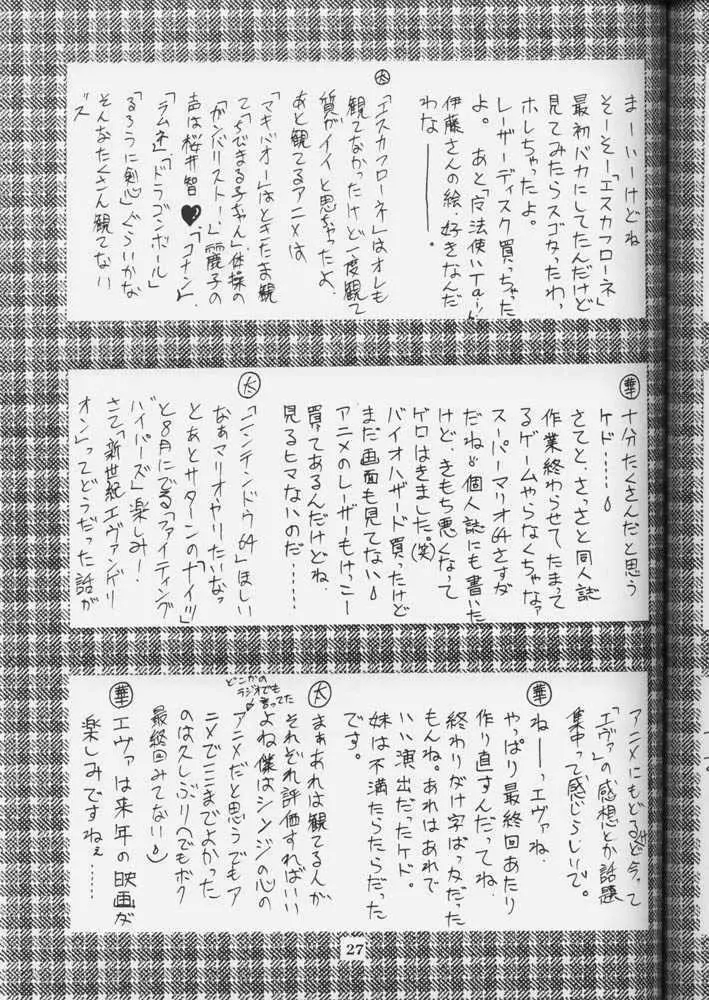 まーいーけどね
そーそー「エスカフローネ」
最初バカにしてたんだけど
見てみたらスゴかったわっ
ホレちゃったよ。
レーザーディスク買っちゃった
よ。あと「魔法使いTai!」
伊藤さんの絵、好きなんだ
わなーーー。
大
「エスカフローネ」はオレも
観てなかったけど一度観て
質がイイと思っちゃったよ、
あと観てるアニメは
「マキバオー」はときたま観
て、「ちびまる子ちゃん」、体操の
「ガンバリスト!」麗子の
声は桜井智♥「コナン」、
「ラムネ」「ドラゴンボール」
「るろうに剣心」ぐらいかな
そんなたくさん観てない
ズ
華
十分たくさんだと思う
ケド……
さてと、さっさと同人誌
作業終わらせてたまって
るゲームやらなくちゃなっ
スーパーマリオ64さすが
だね。個人誌にも書いた
けど、きもち悪くなって
ゲロはきました。(笑)
バイオハザード買ったけど
まだ画面も見てない
アニメのレーザーもけっこー
買ってあるんだけどね、
見るヒマないのだ……
大
「ニンテンドウ64」ほしい
なぁマリオやりたいなっ
とあとサターンの「ナイツ」
と8月にでる「ファイティング
バイパーズ」楽しみー!
さて「新世紀エヴァンゲリ
オン」ってどうだった話が
アニメにもどるけど今って
「エヴァ」の感想とか話題
集中って感じらしいで。
華
ね——っエヴァね、
やっぱり最終回あたり
作り直すんだってね、
終わりがけ字ばっかだった
もんね。あれはあれで
いい演出だったケド。
妹は不満たらたらだった
です。
大
まぁあれは観てる人が
それぞれ評価すればいい
よね僕はシンジの心の
どこかの
ラジオでも
言ってた
アニメだと思うでもア
ニメでここまでよかった
のは久しぶりへでもボク
最終回みてない
華
エヴァは来年の映画が
楽しみですねぇ……
27